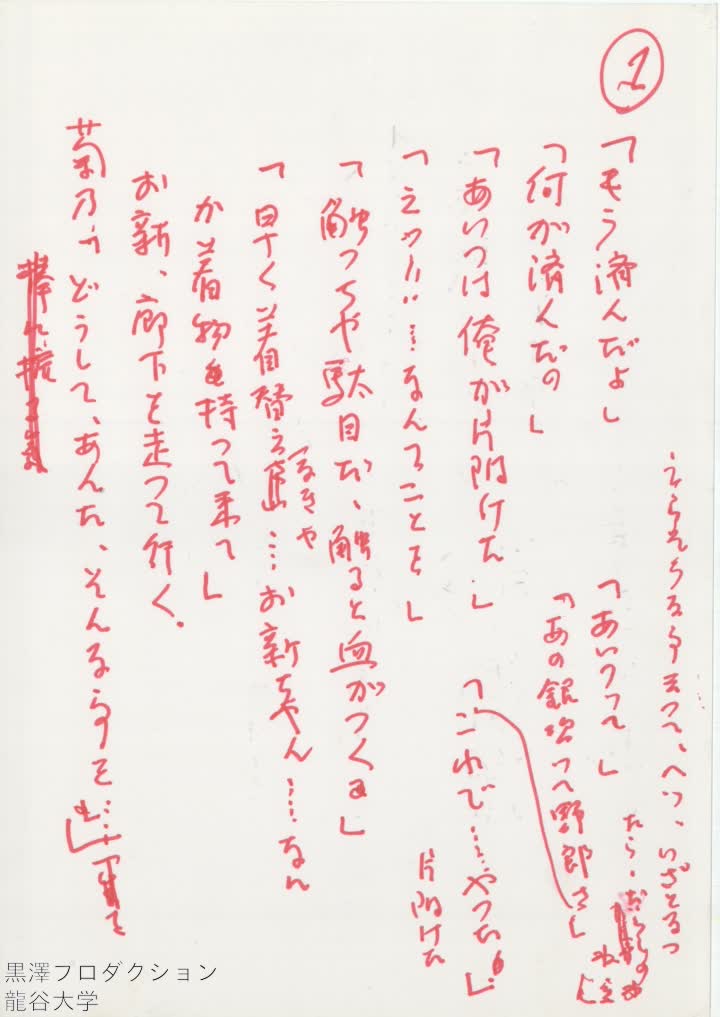 1
「もう済んだよ」
「何が済んだの」
「あいつは俺が片附けた」
「えッ!!…なんてことを」
「触っちゃ駄目だ、触ると血がつくよ」
「早く着替え
なきゃ
…お新ちゃん……なん
か着物を持って来て」
お新、廊下を走って行く。
菊乃「どうして、あんた、そんな事を…」
「あいつって」
「あの銀次って野郎さ」
「これで……やった」
片附けた
えらそうな事云って、へっ、いざとなっ
たら、
黒澤プロダクション
龍谷大学